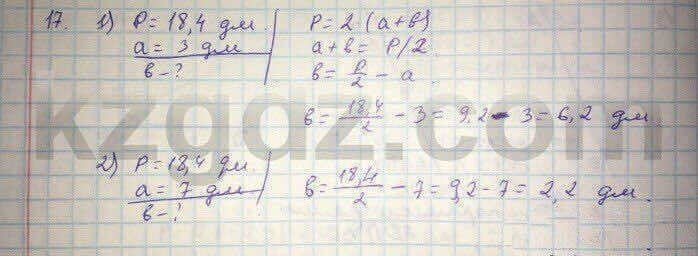 17. 1) P = 18,4 дм. P = 2 · (a+в)
a = 3 дм a + в = P/2
в - ? в = P/2 - a.
в = 18,4/2 - 3 = 9,2 - 3 = 6,2 дм.
kzgdz.com
2) P = 18,4 дм.
a = 7 дм в = 18,4/2 - 7 = 9,2 - 7 = 2,2 дм.
в - ?